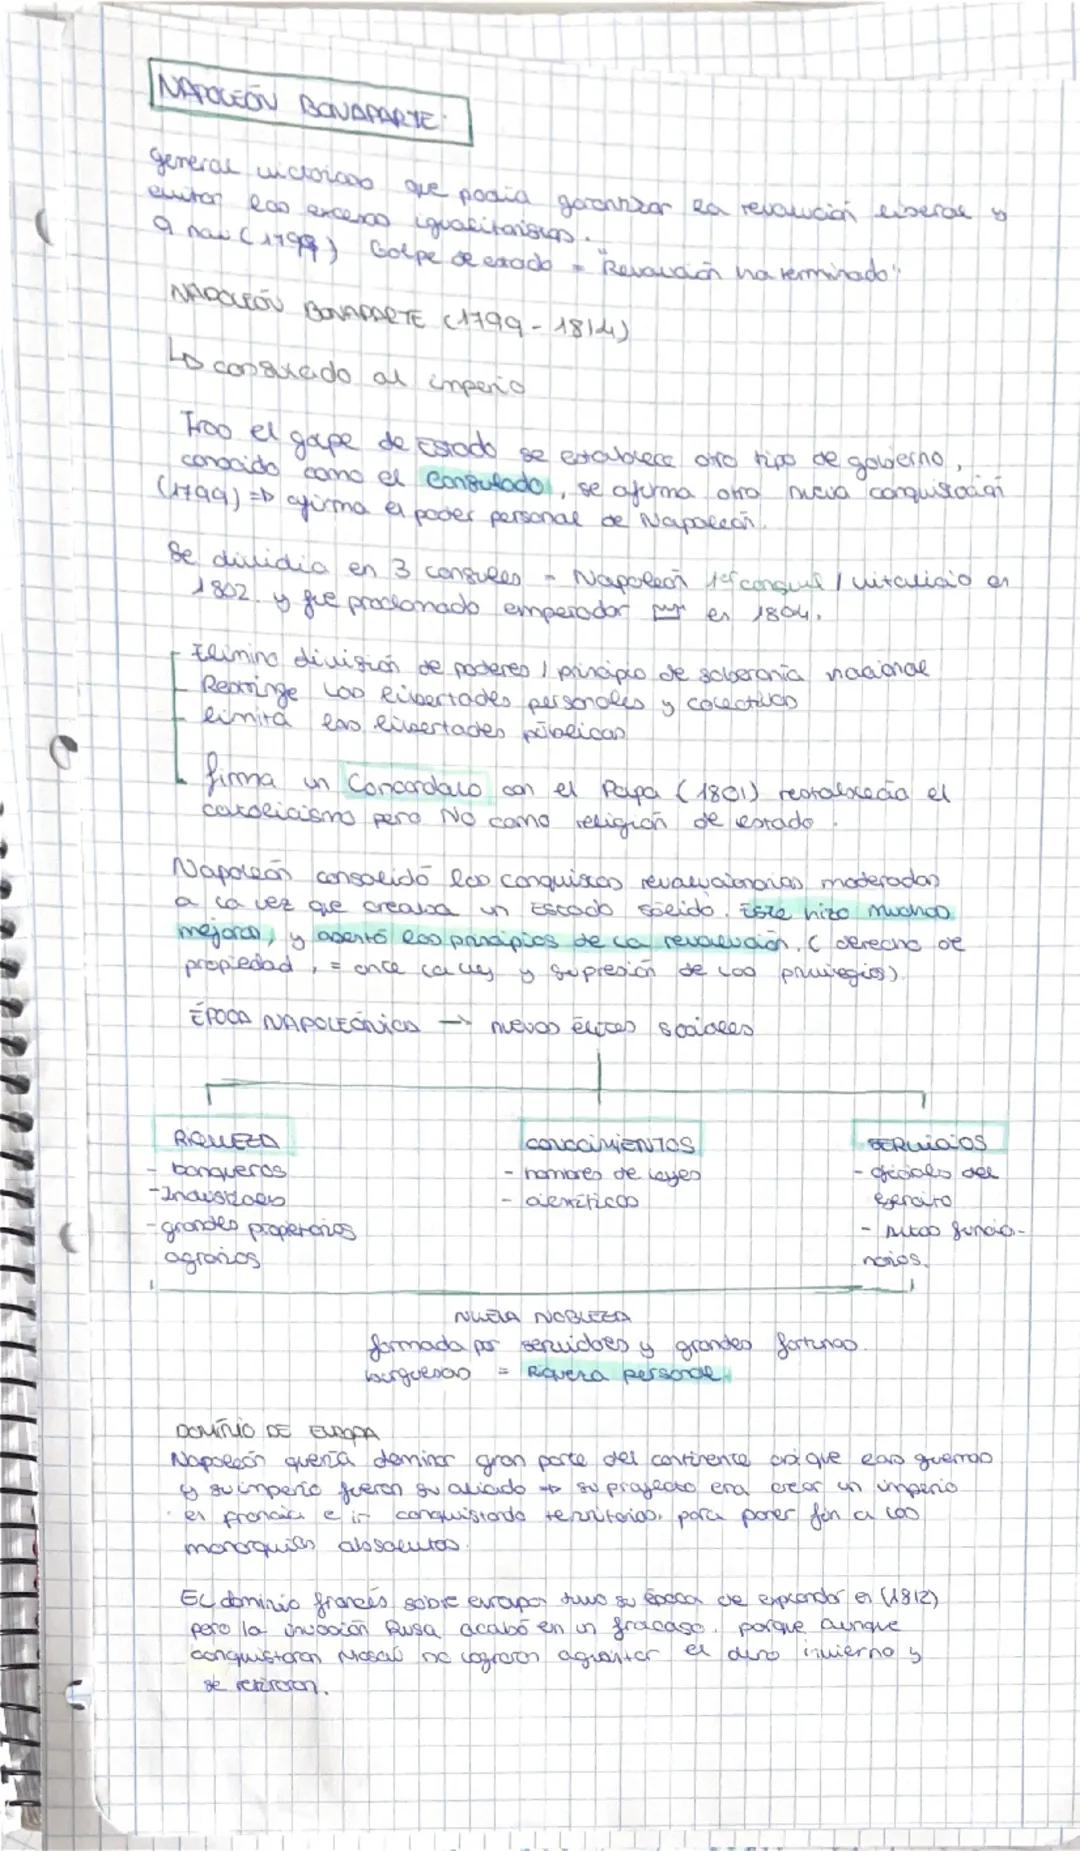 NAPOLEÓN BONAPARTE:
general victorioso que podía garantizar la revolución liberal y
evitar los excesos igualitaristas.
9 nov (1799) Golpe de estado = "Revolución ha terminado"
NAPOLEÓN BONAPARTE (1799-1814)
↳ consulado al imperio
Tras el golpe de Estado se establece otro tipo de gobierno,
conocido como el Consulado, se afirma otra nueva
(1799) => afirma el poder personal de Napoleón.
Se dividia en 3 consules - Napoleón 1er consul / vitalicio en
1802. y fue proclamado emperador en 1804.
Elimina división de poderes / principio de soberanía nacional
Restringe las libertades personales y colectivas
limita las libertades públicas
firma un Concordato con el Papa (1801) restablecía el
catolicismo pero NO como religión de estado.
Napoleón consolidó las conquistas revolucionarias moderadas
a la vez que creaba un Estado sólido. Este hizo muchas
mejoras, y asentó los principios de la revolución. (derecho de
propiedad, = ante la ley y supresión de los privilegios).
ÉPOCA NAPOLEÓNICA → nuevas élites sociales
RIQUEZA
- banqueros
- Industriales
- grandes propetarios
agrarios
CONOCIMIENTOS
- hombres de leyes
- científicos
SERVICIOS
- oficiales del
ejercito
- altos funcio-
narios.
NUEVA NOBLEZA
formada por servidores y grandes fortunas
burguesas = Riqueza personal.
DOMINIO DE EUROPA
Napoleón quería dominar gran parte del continente así que las guerras
y su imperio fueron su aliado → su proyecto era crear un imperio
en francia e ir conquistando territorios, para poner fin a las
monarquías absolutas.
El dominio francés sobre europa tuvo su época de esplendor en (1812)
pero la invasión Rusa acabó en un fracaso. porque aunque
conquistaron Moscú no lograron aguantar el duro invierno y
se retiraron.